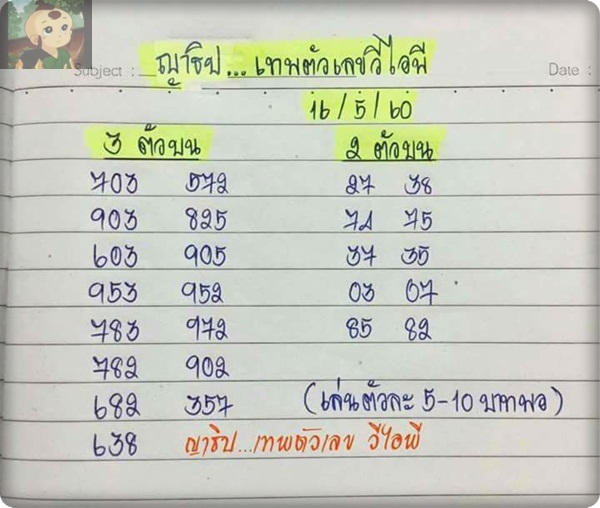 Subject : ญาธิป...เทพตัวเลขวีไอพี Date :
16/5/60
3 ตัวบน 2 ตัวบน
703 572 27 38
903 825 74 75
603 905 37 35
953 952 03 07
783 972 85 82
782 902
682 357 (เล่นตัวละ 5-10 บาทพอ)
638 ญาธิป...เทพตัวเลข วีไอพี